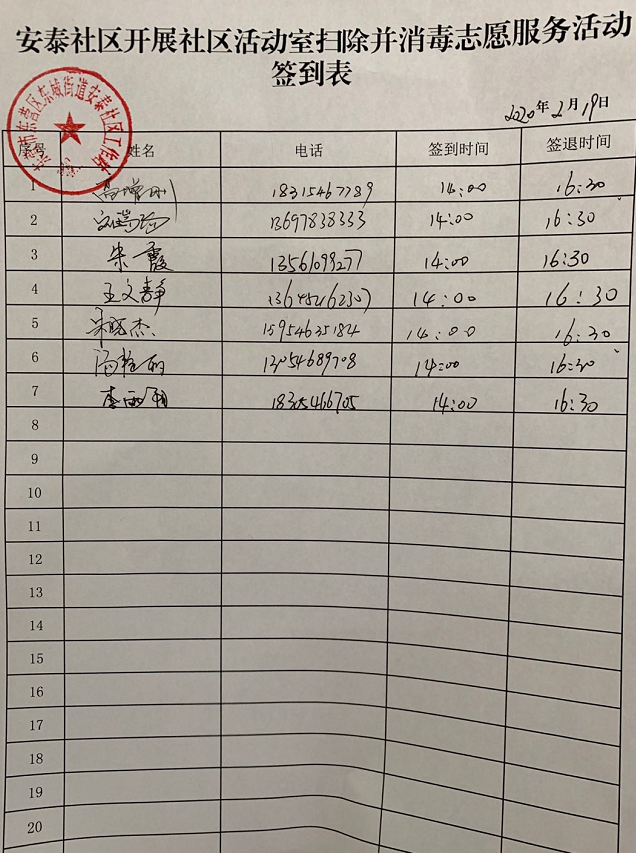 安泰社区开展社区活动室扫除并消毒志愿服务活动
签到表
2020年2月19日
序号 姓名 电话 签到时间 签退时间
1 18315467789 14:00 16:30
2 13697838333 14:00 16:30
3 朱霞 13561099277 14:00 16:30
4 王文静 13645462307 14:00 16:30
5 宋晓杰 15954635184 14:00 16:30
6 13054689708 14:00 16:30
7 18305466705 14:00 16:30
8
9
10
11
12
13
14
15
16
17
18
19
20